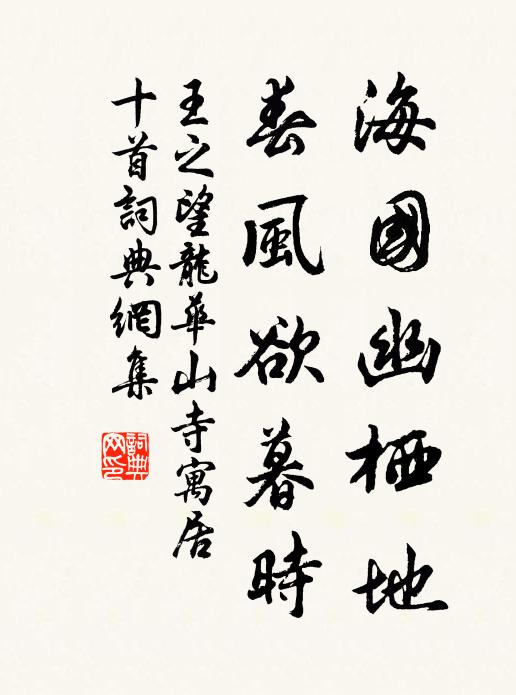 海國幽栖地
春風欲暮時
王之望龍華山寺寓居
十首詞典網集
詞典
网印